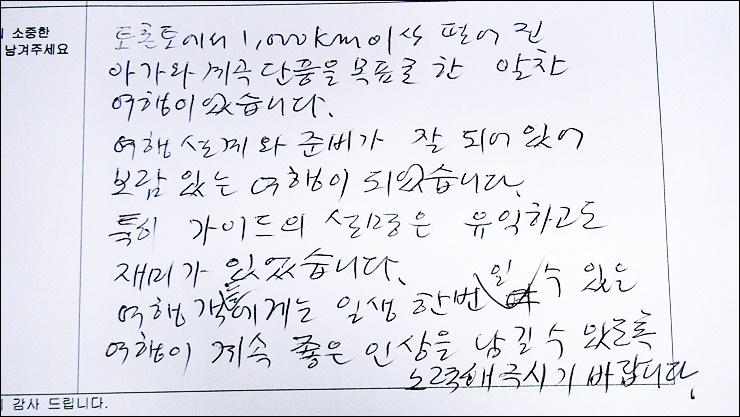 소중한
남겨주세요
토론토에서 1,000km 이상 떨어진
아가와 계곡 단풍을 목표로 한 알찬
여행이었습니다.
여행 설계와 준비가 잘 되어 있어
보람 있는 여행이 되었습니다.
특히 가이드의 설명은 유익하고도
재미가 있었습니다.
여행객들에게는 일생 한번일 수 있는
여행이 계속 좋은 인상을 남길 수 있도록
노력해 주시기 바랍니다.
감사 드립니다.